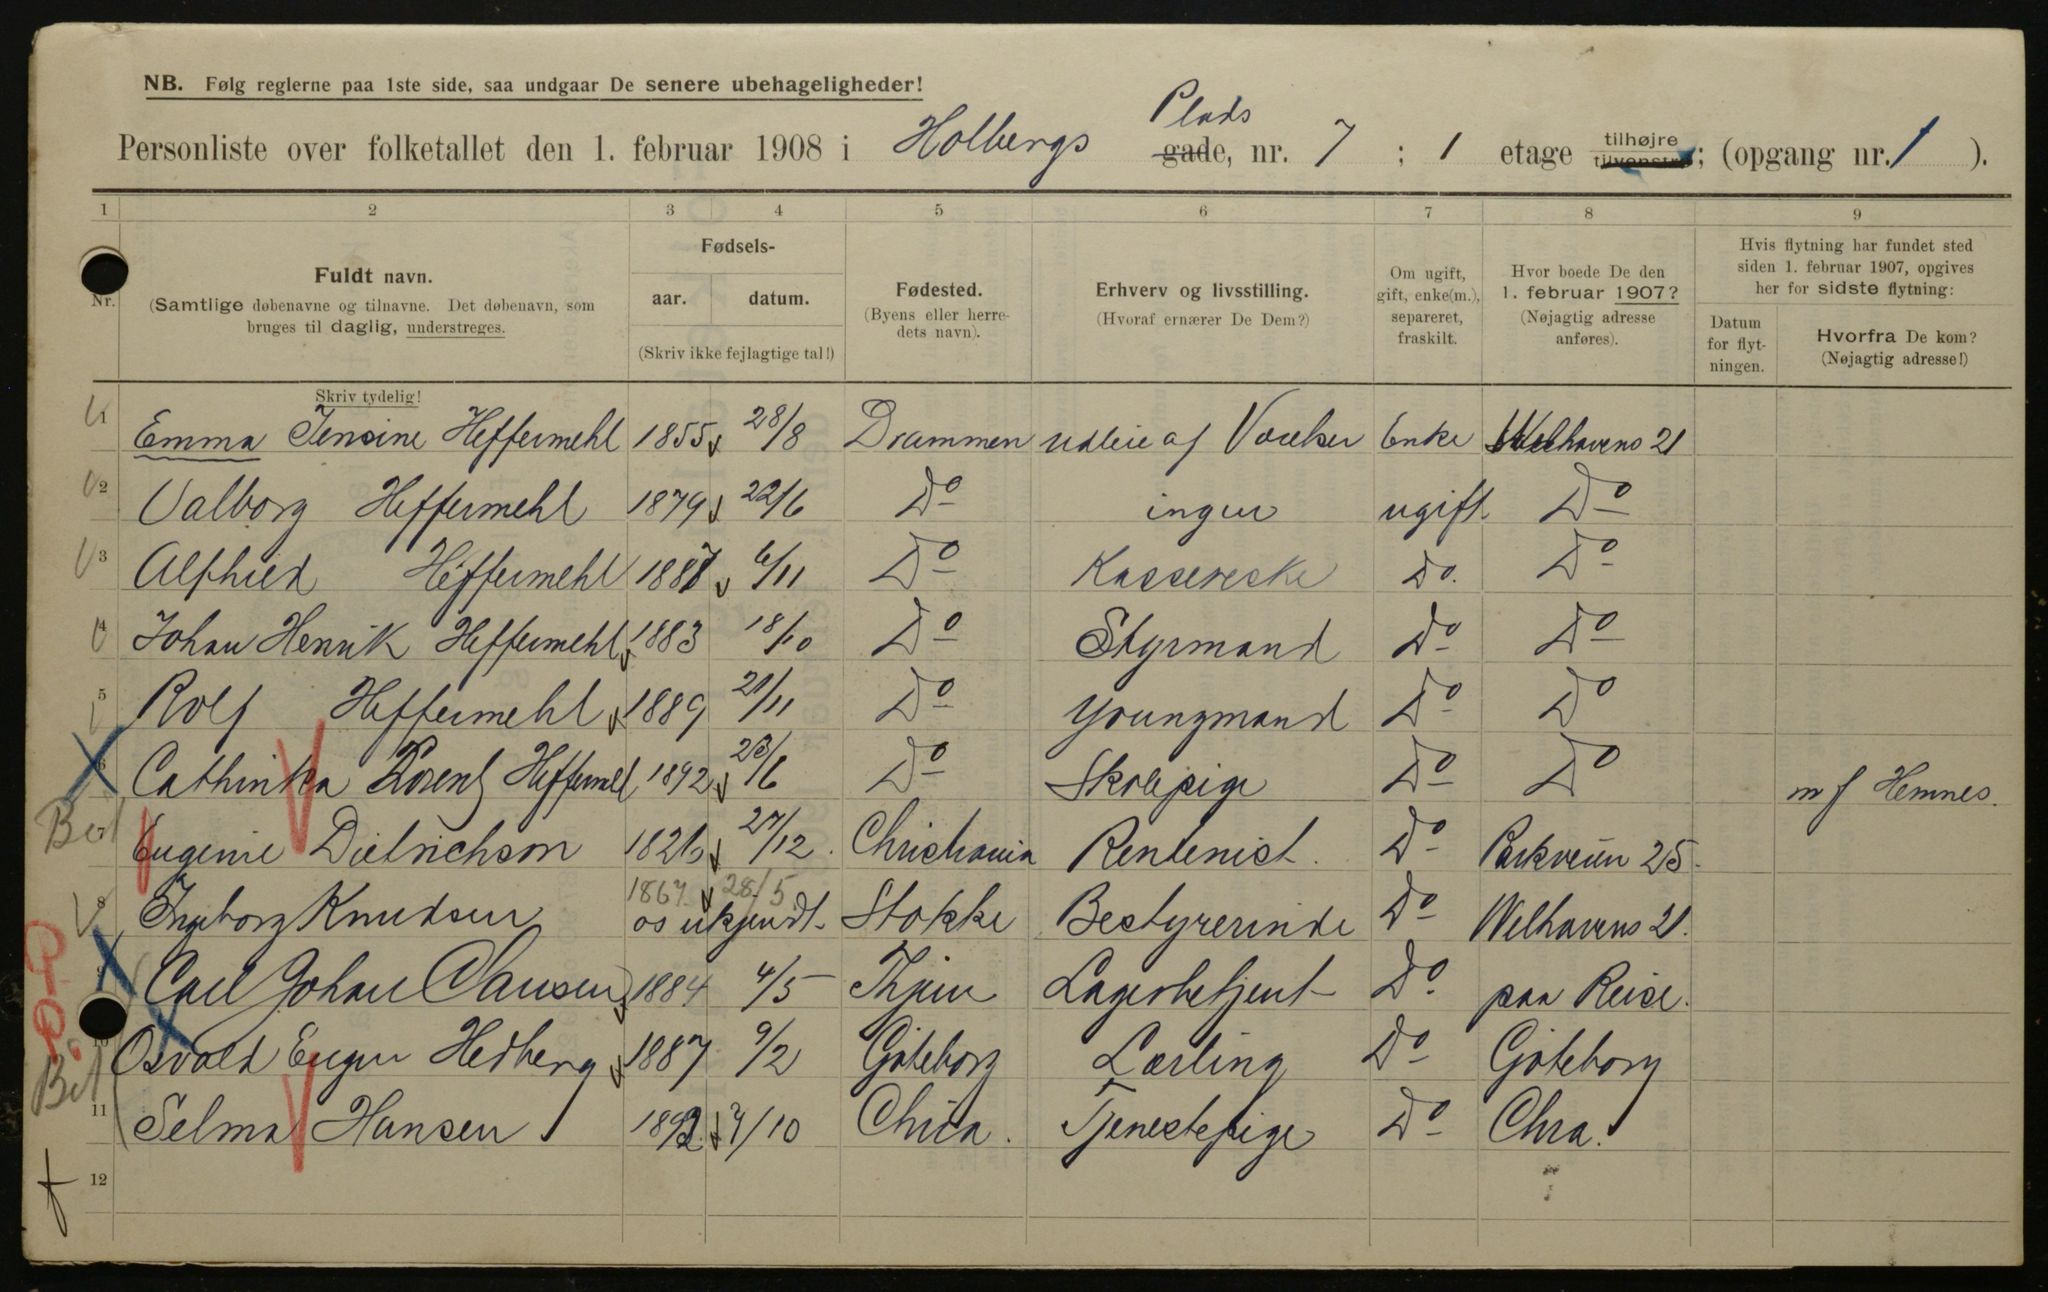 NB. Følg reglerne paa 1ste side, saa undgaar De senere ubehageligheder!
Personliste over folketallet den 1. februar 1908 i Holbergs Plads gade, nr. 7 ; 1 etage tilhøjre tilvenstre; (opgang nr. 1 ).
1 2 3 4 5 6 7 8 9
Nr.
Fuldt navn.
(Samtlige døbenavne og tilnavne. Det døbenavn, som
bruges til daglig, understreges.
Skriv tydelig!
Fødsels-
aar. datum.
(Skriv ikke fejlagtige tal!)
Fødested.
(Byens eller herre-
dets navn).
Erhverv og livsstilling.
(Hvoraf ernærer De Dem?)
Om ugift,
gift, enke(m.),
separeret,
fraskilt.
Hvor boede De den
1. februar 1907?
(Nøjagtig adresse
anføres).
Hvis flytning har fundet sted
siden 1. februar 1907, opgives
her for sidste flytning:
Datum
for flyt-
ningen.
Hvorfra De kom?
(Nøjagtig adresse!)
1 Emma Jensine Heffermehl 1855 28/8 Drammen udleie af Værelser Enke Welhavens 21
2 Valborg Heffermehl 1879 22/6 Do ingen ugift Do
3 Alfhied Heffermehl 1887 6/11 Do Kassereske Do. Do
4 Johan Henrik Heffermehl 1883 18/10 Do Styrmand Do Do
5 Rolf Heffermehl 1889 21/11 Do Youngmand Do Do
6 Cathinka Heffermehl 1892 23/6 Do Skolepige Do Do m f Hemnes.
7 Eugenie Dietrichson 1826 27/12. Christiania Rentenist. Do Parkveien 25.
8 Ingeborg Knudsen 1867 28/5. os ukjendt Stokke Bestyrerinde Do Welhavens 21.
9 Carl Johan Clausen 1884 4/5 Lagerbetjent Do paa Reise.
10 Osvald Eugen Hedberg 1887 9/2 Göteborg Lærling Do Göteborg
11 Selma Hansen 1892 7/10 Chria. Tjenestepige Do Chra.
12